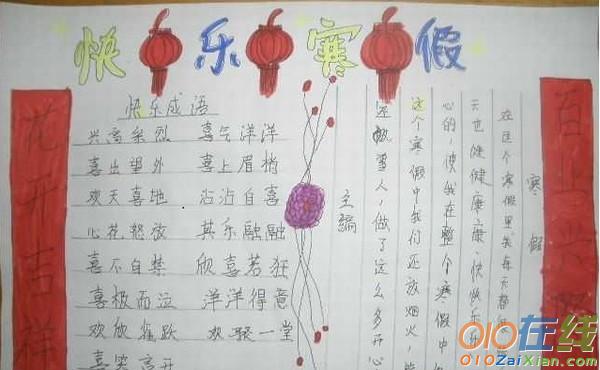 快乐寒假
花开吉祥
百业兴
快乐成语
兴高采烈 喜气洋洋
喜出望外 喜上眉梢
欢天喜地 沾沾自喜
心花怒放 其乐融融
喜不自禁 欣喜若狂
喜极而泣 洋洋得意
欢欣雀跃 欢聚一堂
喜笑
寒假
在这个寒假里我每天都
天也健健康康、快快乐
心的,使我在整个寒假中
这个寒假中我们还放烟火、
雪人,做了这么多开心
主编
010在线
010ZaiXian.com